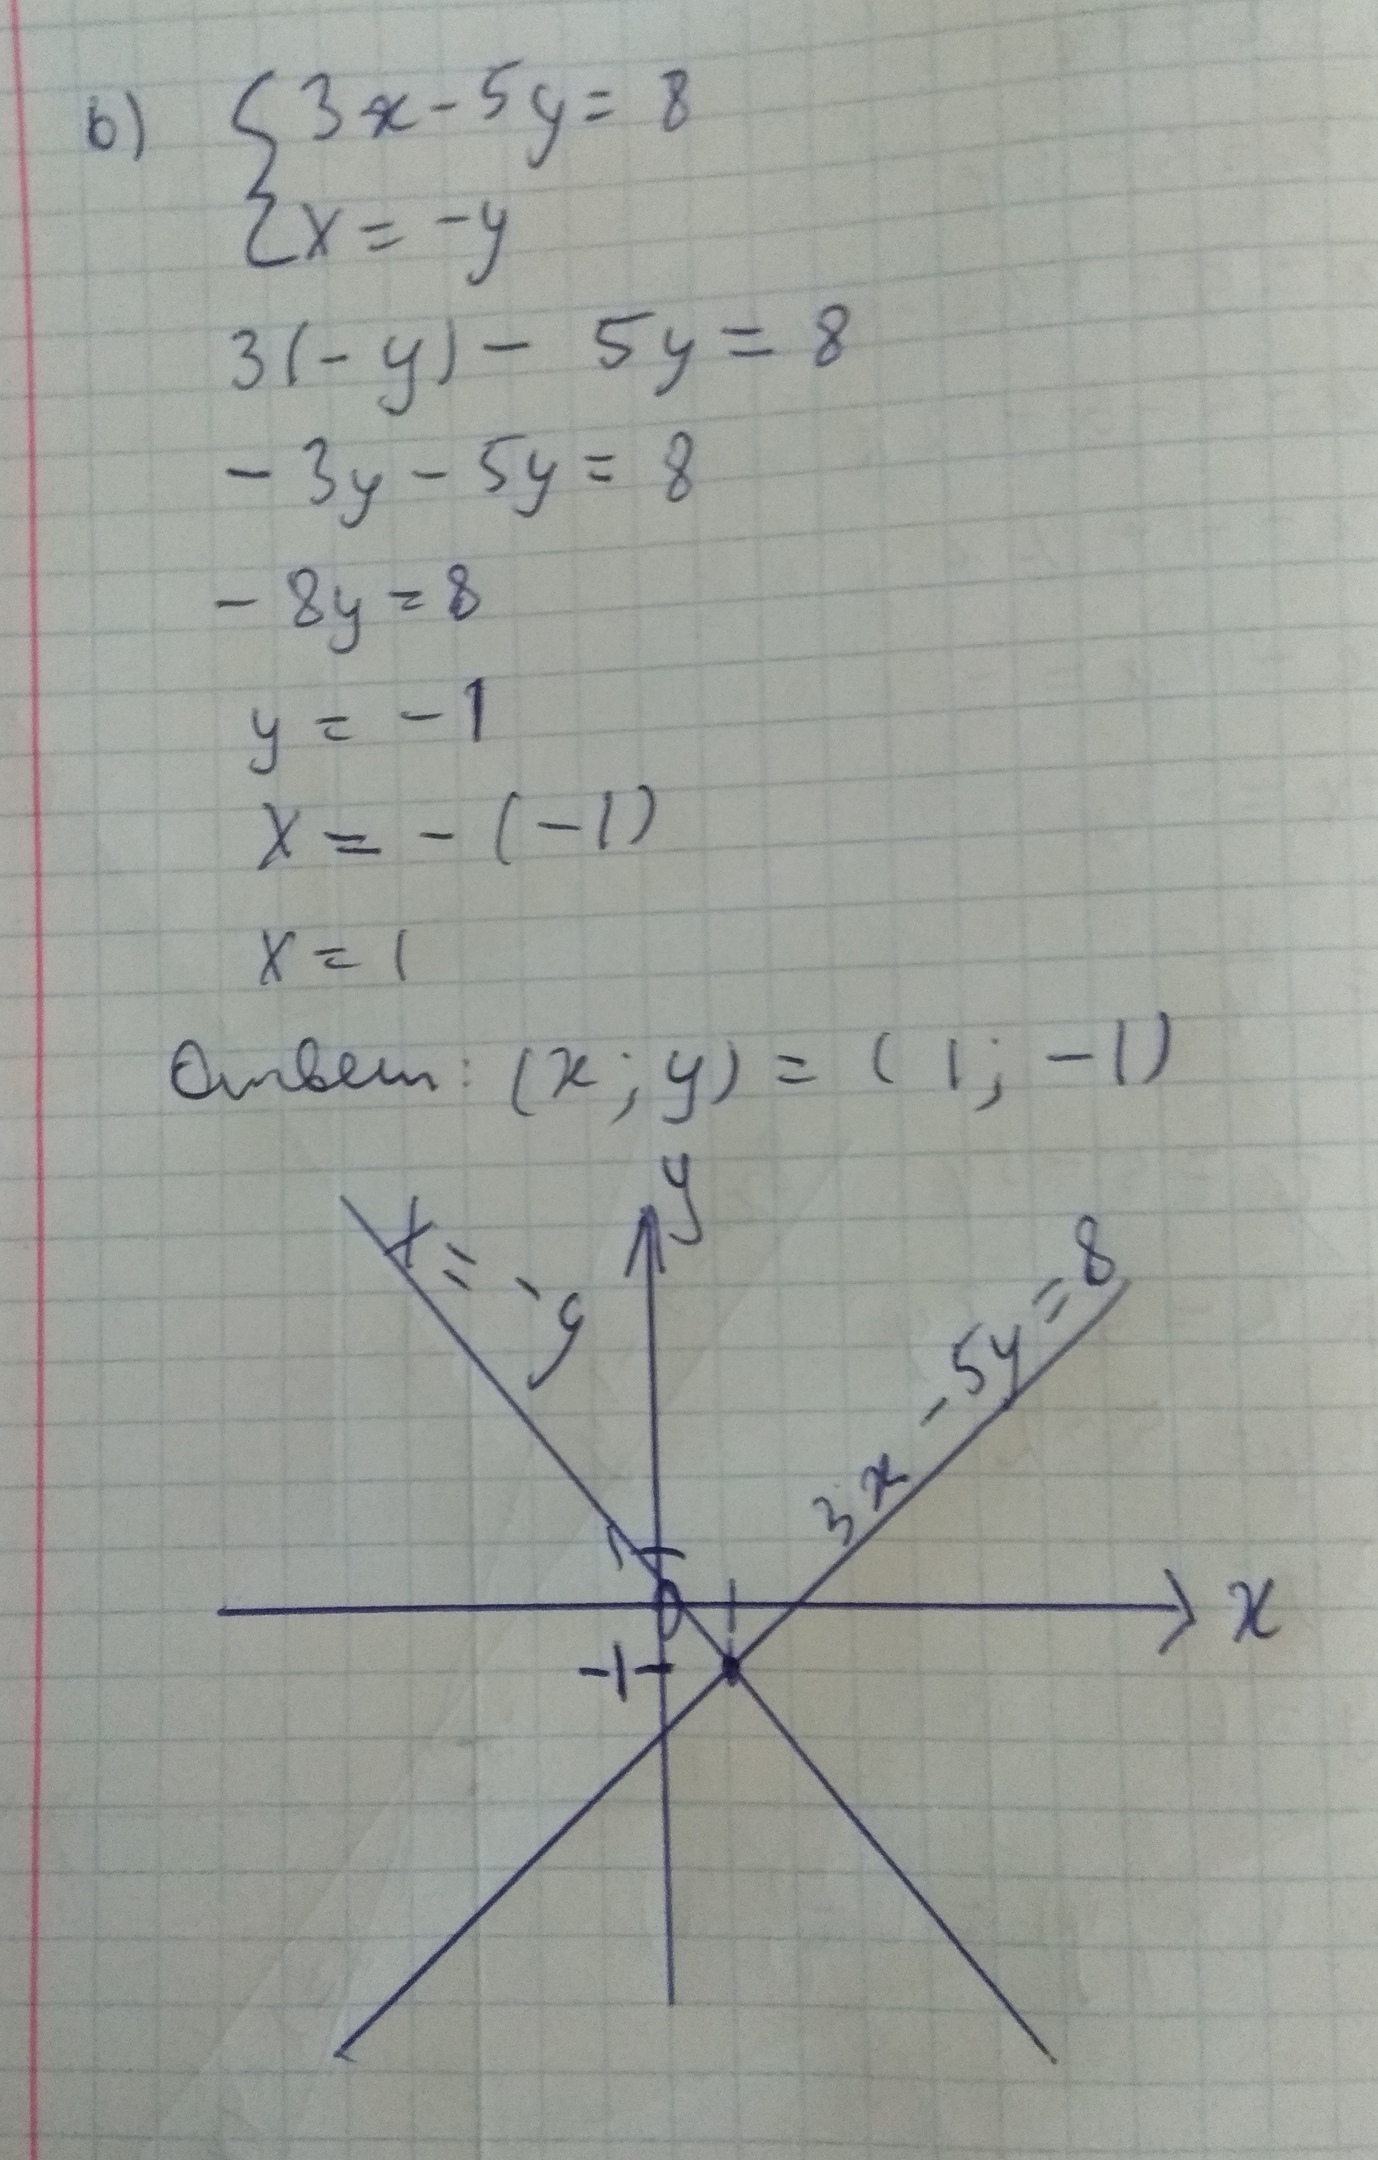 б) { 3x - 5y = 8
x = -y
3(-y) - 5y = 8
- 3y - 5y = 8
- 8y = 8
y = -1
x = - (-1)
x = 1
Ответ: (x; y) = (1; -1)
y
x = -y
3x - 5y = 8
1
0
1
x
-1